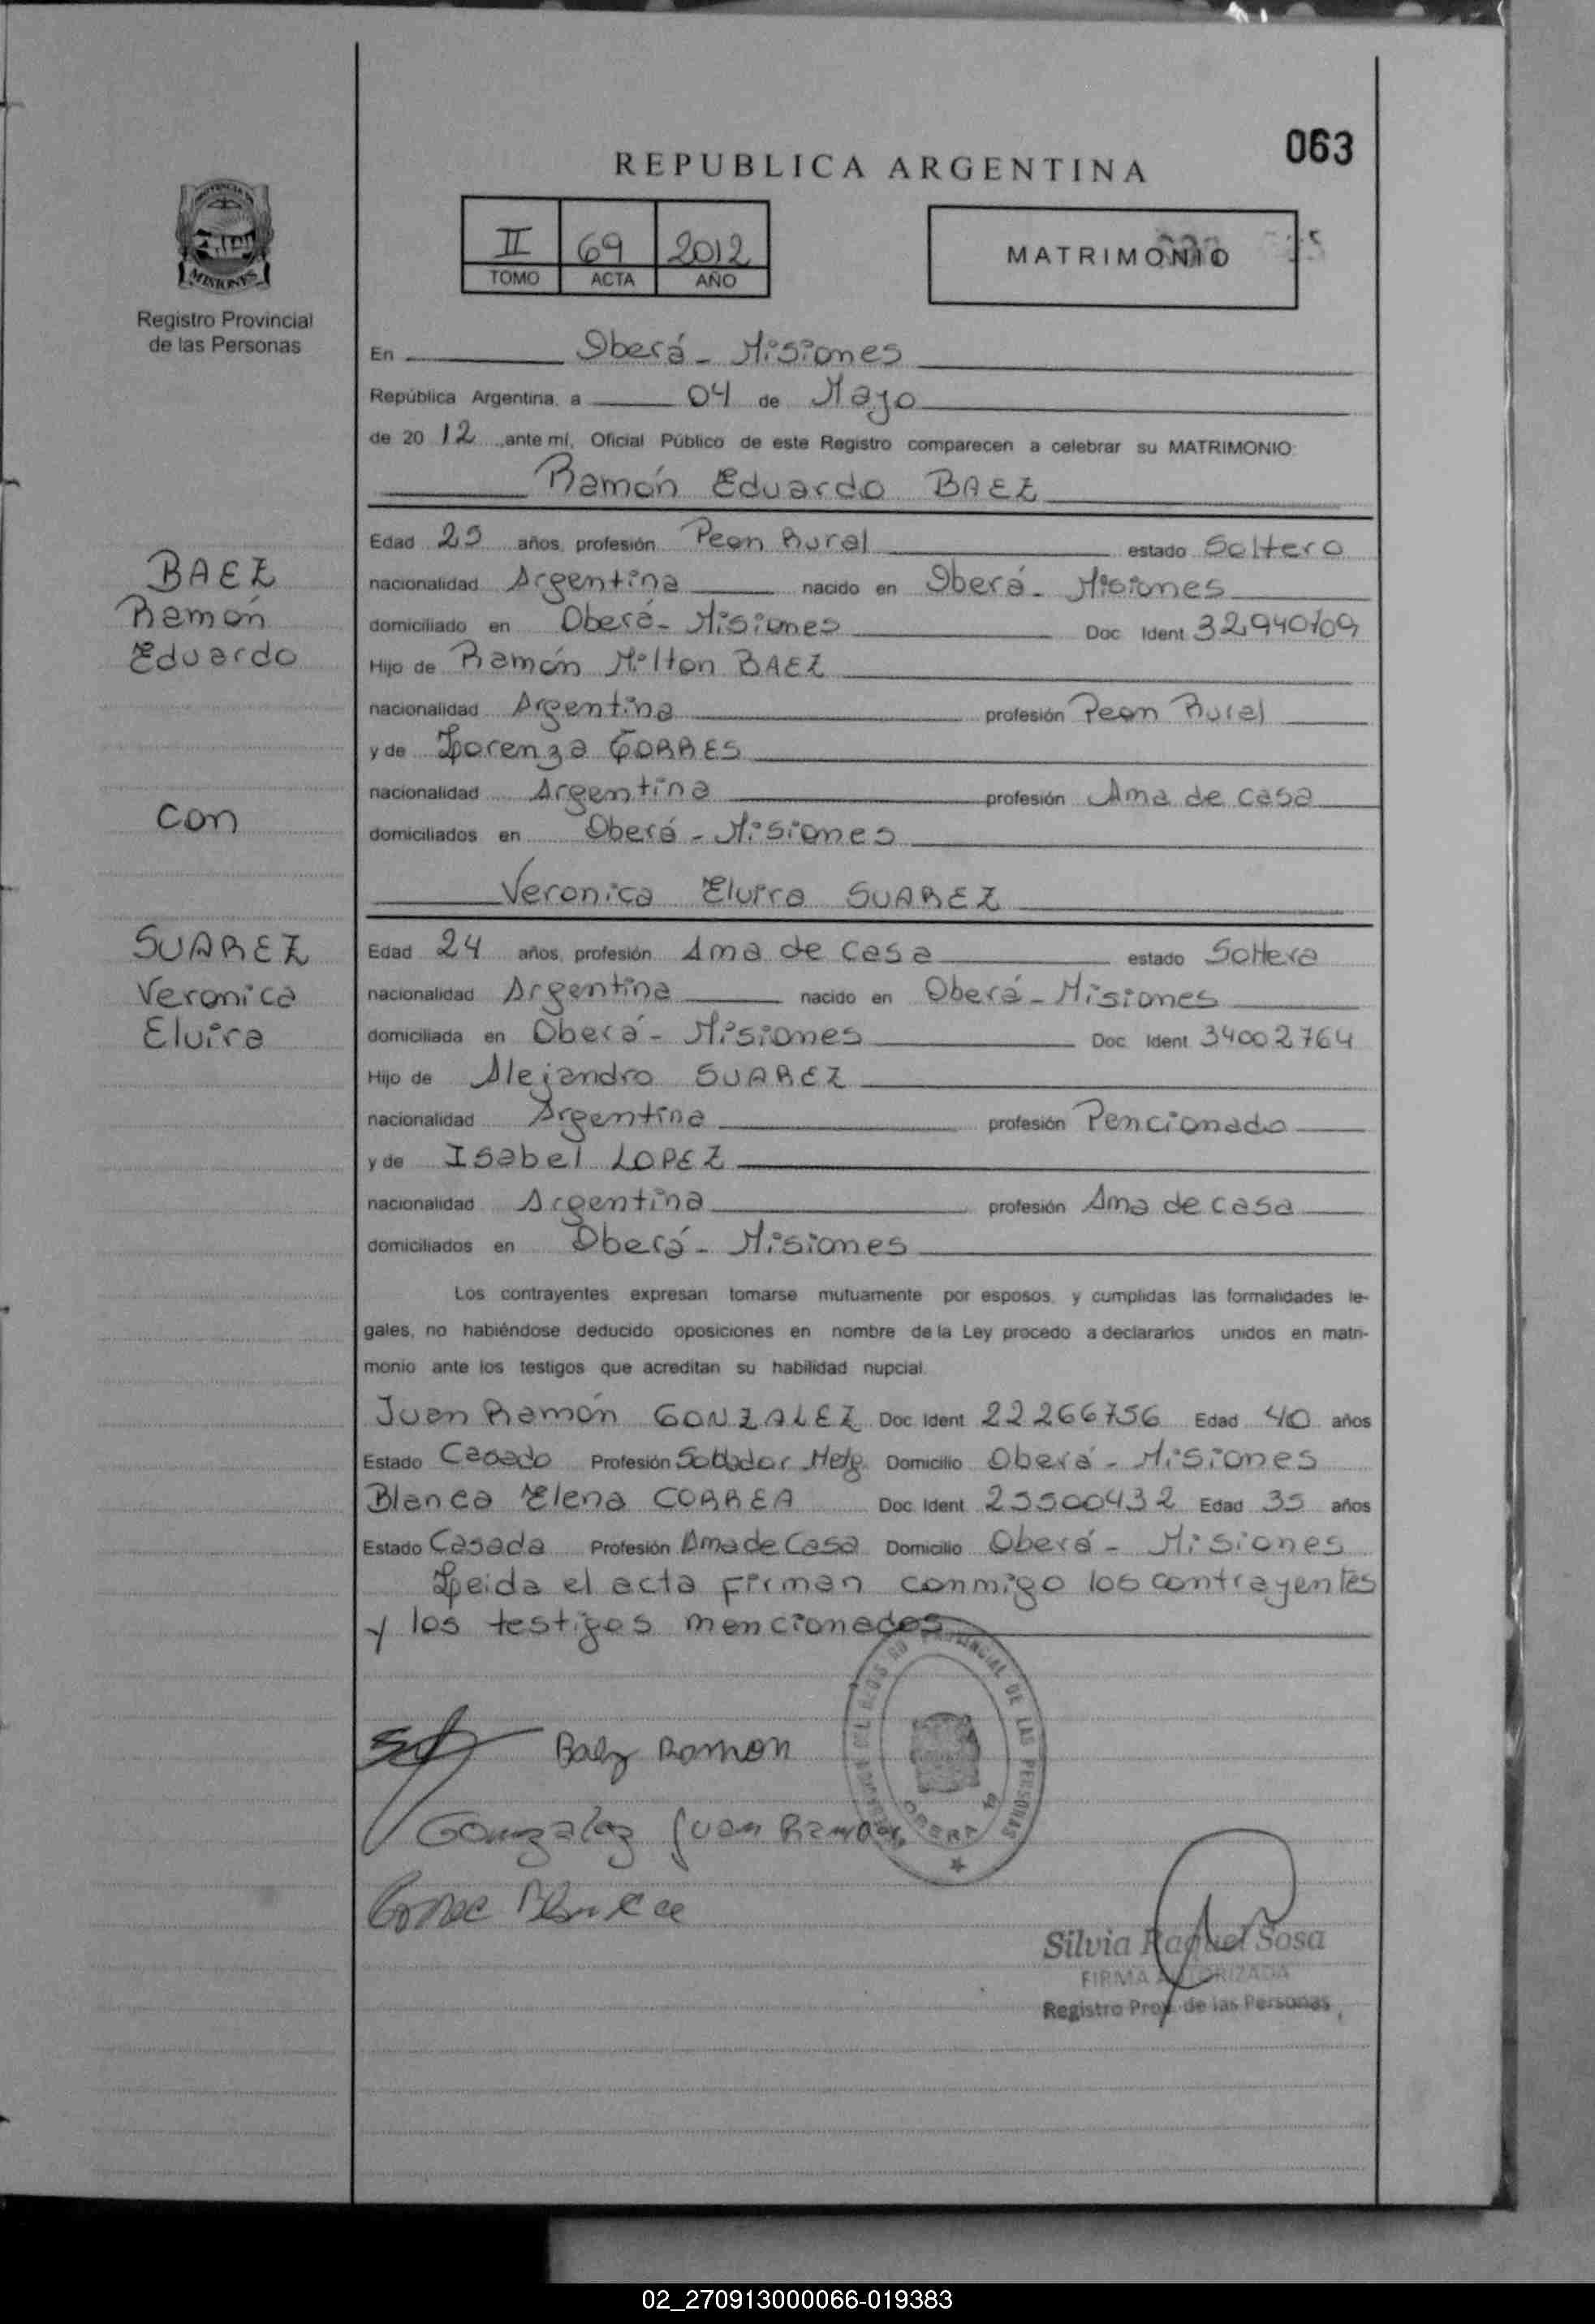 063
REPUBLICA ARGENTINA
II 69 2012
TOMO ACTA AÑO
MATRIMONIO
PROVINCIA DE
MISIONES
Registro Provincial
de las Personas
En Oberá - Misiones
República Argentina, a 04 de Mayo
de 2012, ante mí, Oficial Público de este Registro comparecen a celebrar su MATRIMONIO:
Ramón Eduardo BAEZ
BAEZ
Ramón
Eduardo
con
SUAREZ
Veronica
Elvira
Edad años, profesión Peon Rural estado Soltero
nacionalidad Argentina nacido en Oberá - Misiones
domiciliado en Oberá - Misiones Doc Ident 32.940109
Hijo de Ramón Milton BAEZ
nacionalidad Argentina profesión Peon Rural
y de Lorenza TORRES
nacionalidad Argentina profesión Ama de casa
domiciliados en Oberá - Misiones
Veronica Elvira SUAREZ
Edad 24 años, profesión Ama de casa estado Soltera
nacionalidad Argentina nacido en Oberá - Misiones
domiciliada en Oberá - Misiones Doc Ident 34002764
Hijo de Alejandro SUAREZ
nacionalidad Argentina profesión Pencionado
y de Isabel LOPEZ
nacionalidad Argentina profesión Ama de casa
domiciliados en Oberá - Misiones
Los contrayentes expresan tomarse mutuamente por esposos, y cumplidas las formalidades le-
gales, no habiéndose deducido oposiciones en nombre de la Ley procedo a declararlos unidos en matri-
monio ante los testigos que acreditan su habilidad nupcial.
Juan Ramón GONZALEZ Doc. Ident 22266756 Edad 40 años
Estado Casado Profesión Soldador Domicilio Oberá - Misiones
Blanca Elena CORREA Doc. Ident Edad 35 años
Estado Casada Profesión Ama de Casa Domicilio Oberá - Misiones
Leida el acta firman conmigo los contrayentes
y los testigos mencionados
Baez Ramon
Gonzalez Juan Ramon
Blanca
REGISTRO PROVINCIAL DE LAS PERSONAS
OBERA
Silvia Raquel Sosa
FIRMA AUTORIZADA
Registro Prov. de las Personas
02_270913000066-019383